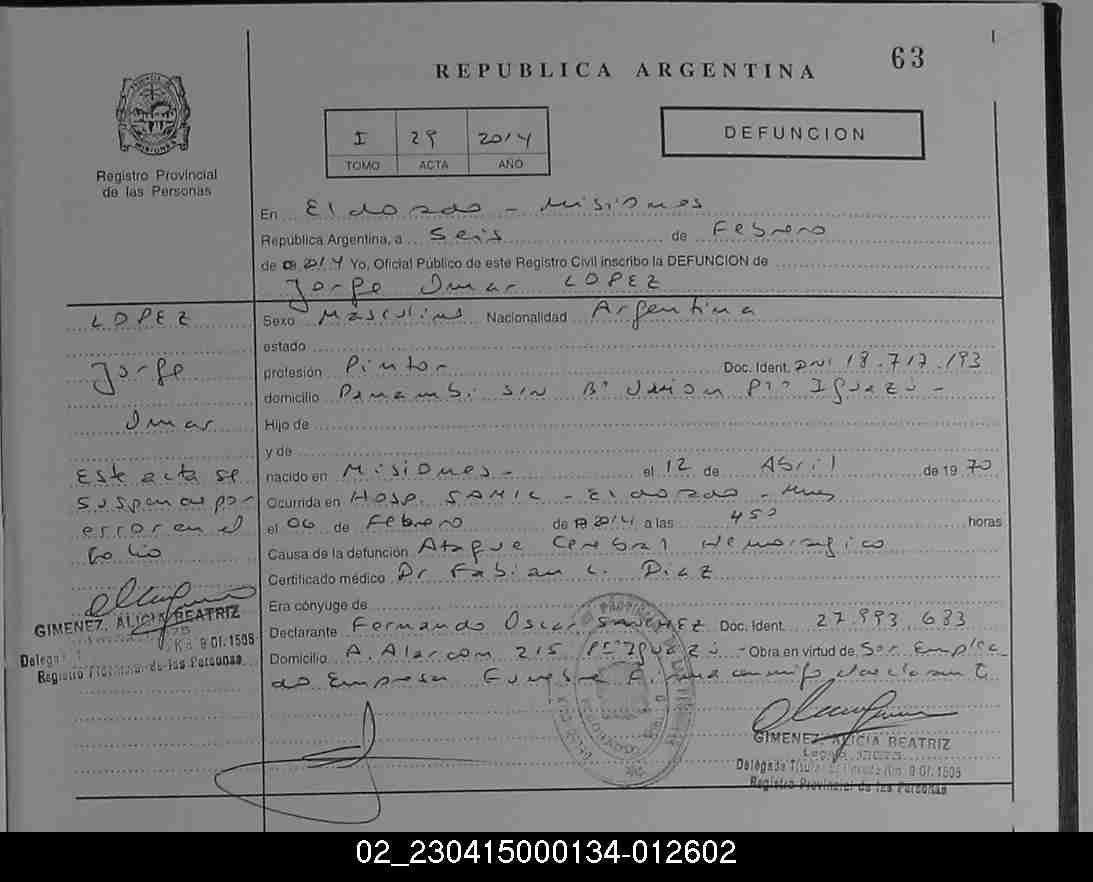 63
REPUBLICA ARGENTINA
I 29 2014
TOMO ACTA AÑO
DEFUNCION
PROVINCIA DE
MISIONES
Registro Provincial
de las Personas
En Eldorado - Misiones
República Argentina, a Seis de Febrero
de 2014 Yo, Oficial Público de este Registro Civil inscribo la DEFUNCION de
Jorge Omar LOPEZ
LOPEZ
Jorge
Omar
Este acta se
suspende por
error en el
folio
GIMENEZ, ALICIA BEATRIZ
Registro Provincial de las Personas
Sexo Masculino Nacionalidad Argentina
estado
profesión Pintor Doc. Ident. DNI 18.717.193
domicilio Panambi S/N B° Union Pto Iguazú -
Hijo de
y de
nacido en Misiones - el 12 de Abril de 19 70
Ocurrida en Hosp. SAMIC - Eldorado - Mnes
el 06 de Febrero de 2014 a las 450 horas
Causa de la defunción Ataque Cerebral Hemoragico
Certificado médico Dr Fabian C. Diaz
Era cónyuge de
Declarante Fernando Oscar SANCHEZ Doc. Ident. 27.993.683
Domicilio A. Alarcon 215 Pto Iguazú - Obra en virtud de Ser Emplea
do Empresa Funebre Firma conmigo declarant
GIMENEZ, ALICIA BEATRIZ
Registro Provincial de las Personas
02_230415000134-012602